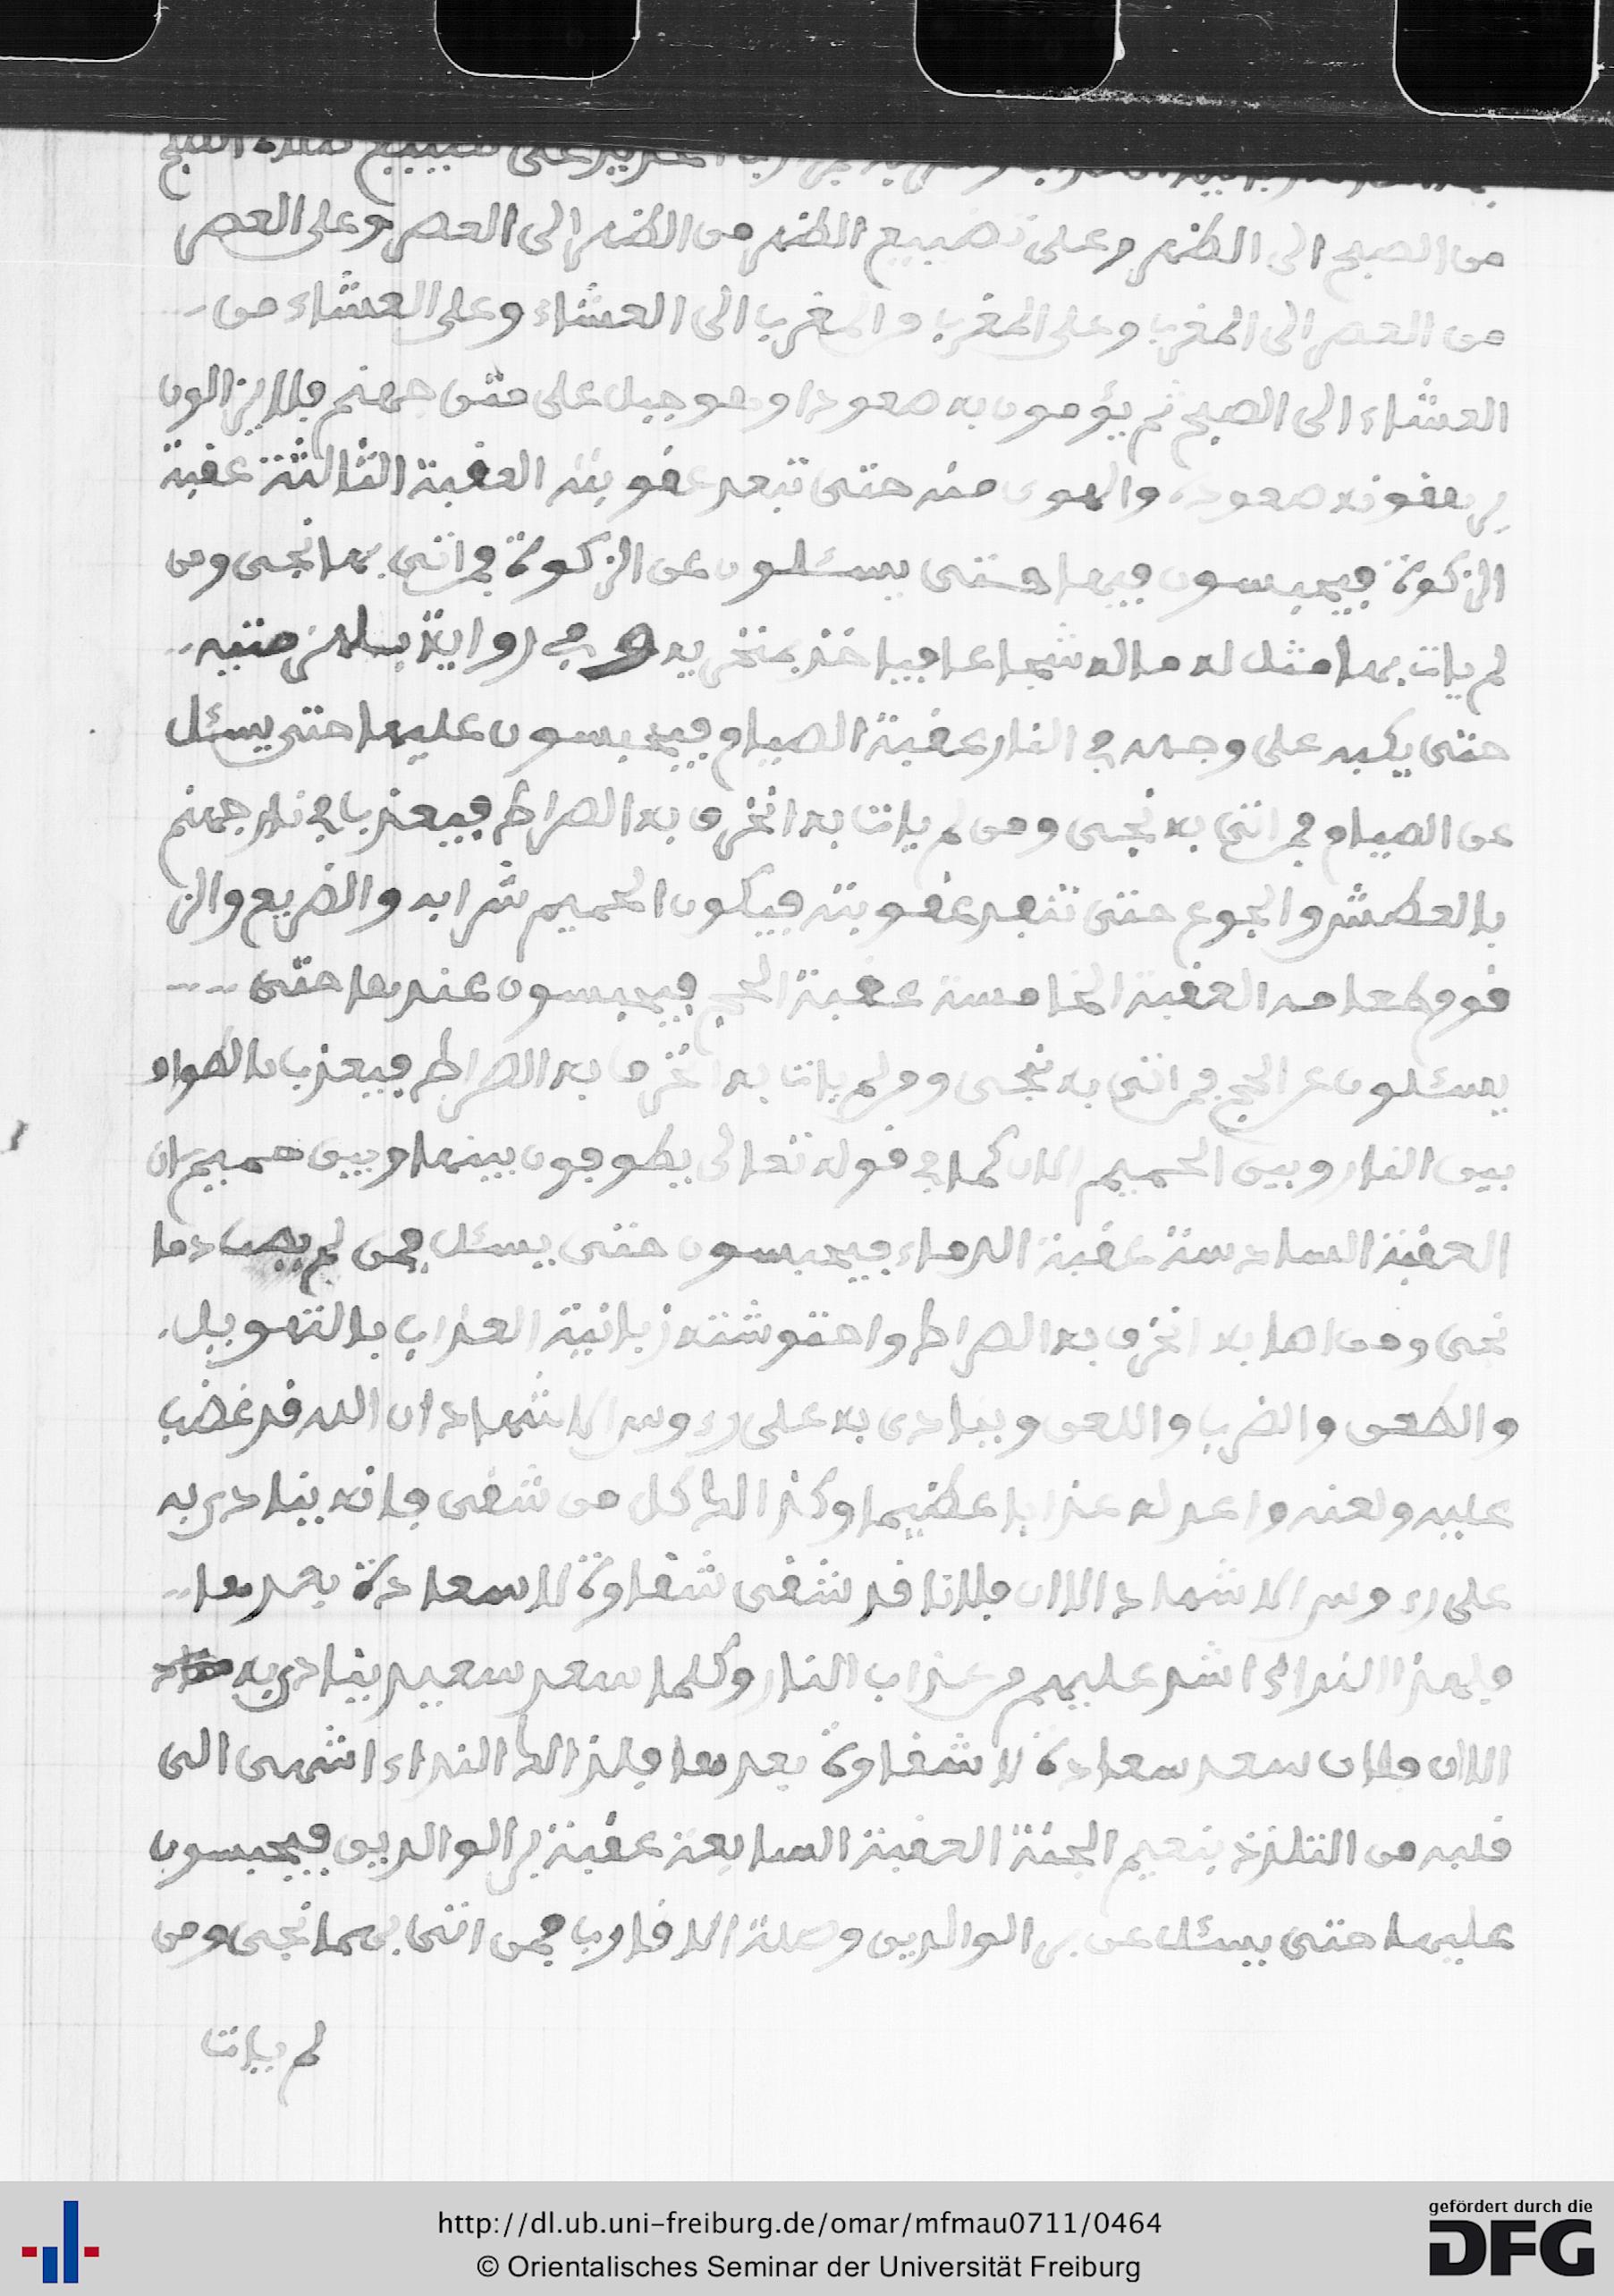 من الصبح الى الظهر وعلى تضييع الظهر من الظهر الى العصر وعلى العصر
من العصر الى المغرب وعلى المغرب والمغرب الى العشاء وعلى العشاء من
العشاء الى الصبح ثم يؤمرون به صعودا وهو جبل على متن جهنم فلا يزالون
صعوده والهوى منه حتى تبعد عقوبته العقبة الثالثة عقبة
الزكوة فيحبسون فيها حتى يسئلون عن الزكوة فمن اتى بها نجى ومن
لم يات بها مثل له ماله شجاعا فياخذ بمنخريه و في رواية بلهزمتيه
حتى يكبه على وجهه في النار عقبة الصيام فيحبسون عليها حتى يسئل
عن الصيام فمن اتى به نجى ومن لم يات به انخرق به الصراط فيعذب في نار جهنم
بالعطش والجوع حتى تنفد عقوبته فيكون الحميم شرابه والضريع والز
قوم طعامه العقبة الخامسة عقبة الحج فيحبسون عندها حتى
يسئلون عن الحج فمن اتى به نجى ومن لم يات به انخرق به الصراط فيعذب بالطواف
بين النار وبين الحميم الان كما في قوله تعالى يطوفون بينها وبين حميم ان
العقبة السادسة عقبة الدماء فيحبسون حتى يسئل فمن لم يصب دما
نجى ومن اصابه انخرق به الصراط واحتوشته زبانية العذاب بالتهويل
والطعن والضرب واللعن وينادى به على رءوس الاشهاد ان الله قد غضب
عليه ولعنه واعد له عذابا عظيما وكذالك كل من شقى فانه ينادى به
على رءوس الاشهاد الاان فلانا قد شقى شقاوة لا سعادة بعدها
فلهذا النداء اشد عليهم من عذاب النار وكلما سعد سعيد ينادى به
الاان فلان سعد سعادة لا شقاوة بعدها فلذالك النداء اشهى الى
قلبه من التلذذ بنعيم الجنة العقبة السابعة عقبة بر الوالدين فيحبسون
عليها حتى يسئل عن بر الوالدين وصلة الاقارب فمن اتى بهما نجى ومن
لم يات
http://dl.ub.uni-freiburg.de/omar/mfmau0711/0464
© Orientalisches Seminar der Universität Freiburg
gefördert durch die
DFG